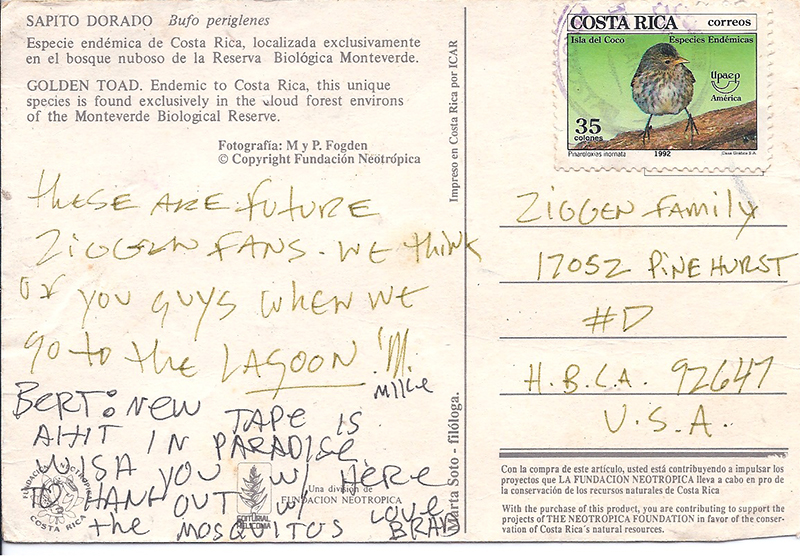 SAPITO DORADO Bufo periglenes
Especie endémica de Costa Rica, localizada exclusivamente
en el bosque nuboso de la Reserva Biológica Monteverde.
GOLDEN TOAD. Endemic to Costa Rica, this unique
species is found exclusively in the cloud forest environs
of the Monteverde Biological Reserve.
Fotografía: M y P. Fogden
© Copyright Fundación Neotrópica
Impreso en Costa Rica por ICAR
These are future
Ziggen fans. We think
of you guys when we
go to the LAGOON!!!
Mike
BERT: NEW TAPE IS
A HIT IN PARADISE.
WISH YOU W/ HERE
TO HANG OUT W/
the MOSQUITOS LOVE
BRAD
FUNDACION NEOTROPICA
COSTA RICA
EDITORIAL
HELICONIA
Una división de
FUNDACION NEOTROPICA
Marta Soto - filóloga.
COSTA RICA correos
Isla del Coco Especies Endémicas
Upaep
América
35
colones
Pinaroloxias inornata 1992 Casa Gráfica S.A.
ZIGGEN FAMILY
17052 PINEHURST
#D
H.B. CA. 92647
U.S.A.
Con la compra de este artículo, usted está contribuyendo a impulsar los
proyectos que LA FUNDACION NEOTROPICA lleva a cabo en pro de
la conservación de los recursos naturales de Costa Rica
With the purchase of this product, you are contributing to support the
projects of THE NEOTROPICA FOUNDATION in favor of the conser-
vation of Costa Rica's natural resources.